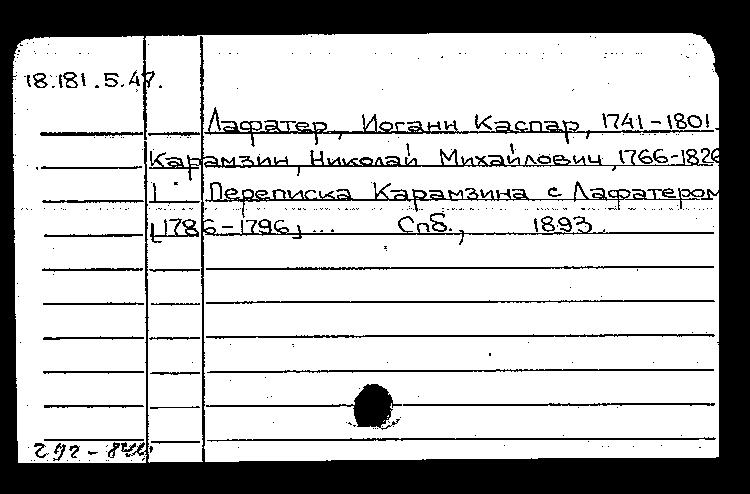 18.181.5.47.
Лафатер, Иоганн Каспар, 1741-1801.
Карамзин, Николай Михайлович, 1766-1826
1 Переписка Карамзина с Лафатером
[1786-1796] ... Спб., 1893.
292-